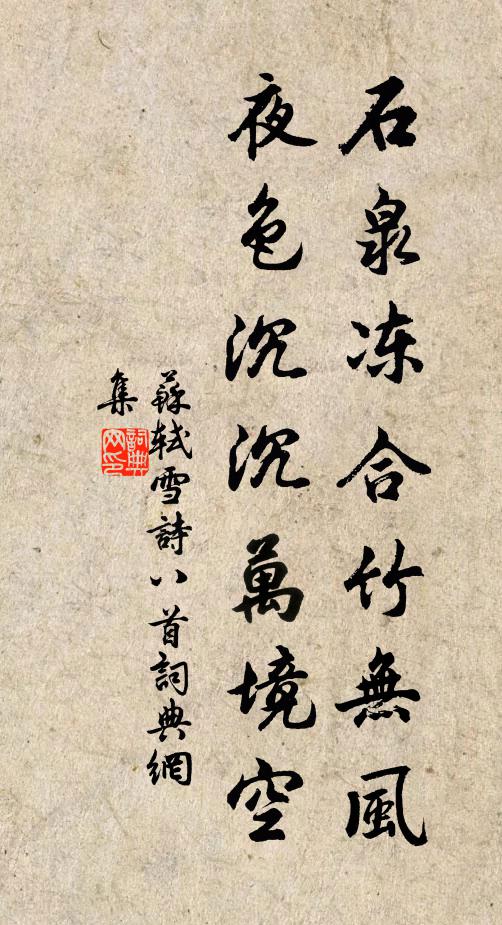 石泉冻合竹無風
夜色沉沉萬境空
蘇軾雪詩八首詞典網
集
詞典网印